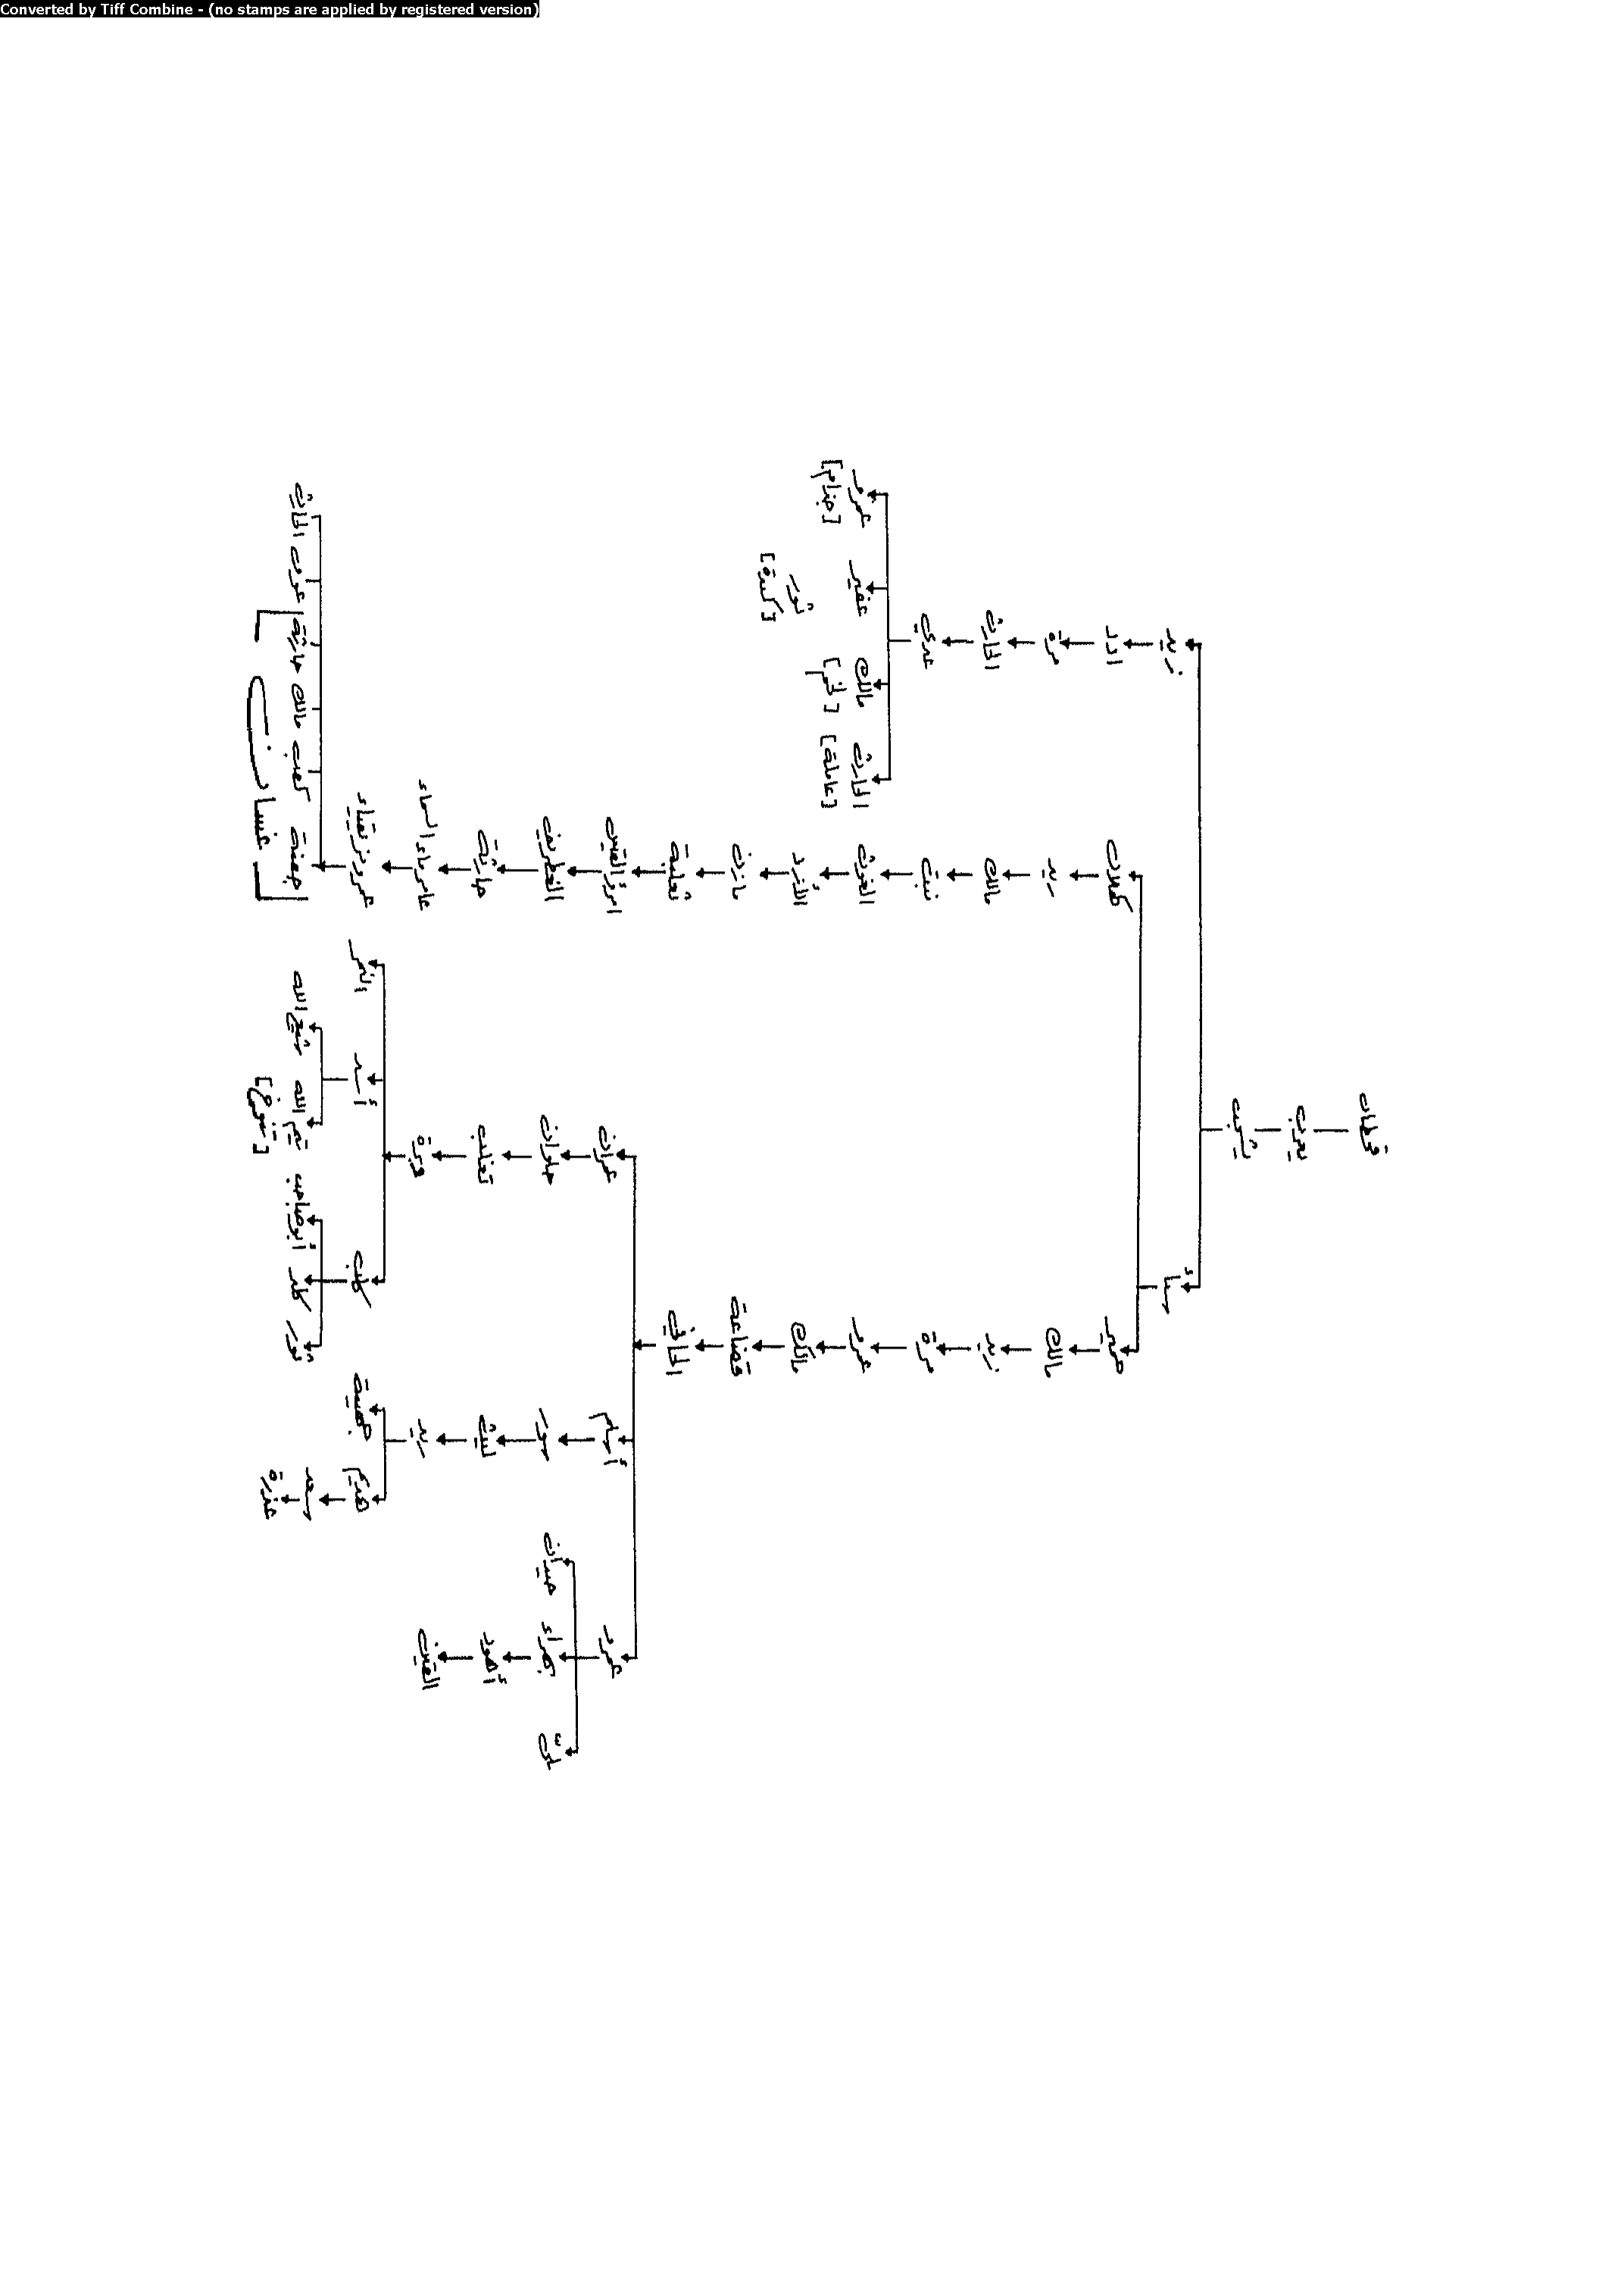 Converted by Tiff Combine - (no stamps are applied by registered version)
قحطان
يعرب
يشجب
زيد
سبأ
ادد
مرة
الحارث
عدي
عمرو
[جذام]
عفير
ثور
[كندة]
مالك
[لخم]
الحارث
[عاملة]
كهلان
زيد
مالك
نبت
الغوث
الأزد
مازن
ثعلبة
امرؤ القيس
الغطريف
حارثة
عامر ماء السماء
عمرو مزيقياء
جفنة
كعب
مالك
حارثة
عوف
الحارث
[غسان]
حمير
مالك
زيد
مرة
عمرو
مالك
قضاعة
الحافي
عمران
حلوان
تغلب
وبرة
النمر
أسد
كلب
شيع الله
تيم الله
[تنوخ]
أبو ضاحب
كلد
ثور
أسلم
سود
ليث
زيد
جهينة
هذيم
سعد
عذرة
عمرو
حيدان
بهراء
بلي
أهود
القين